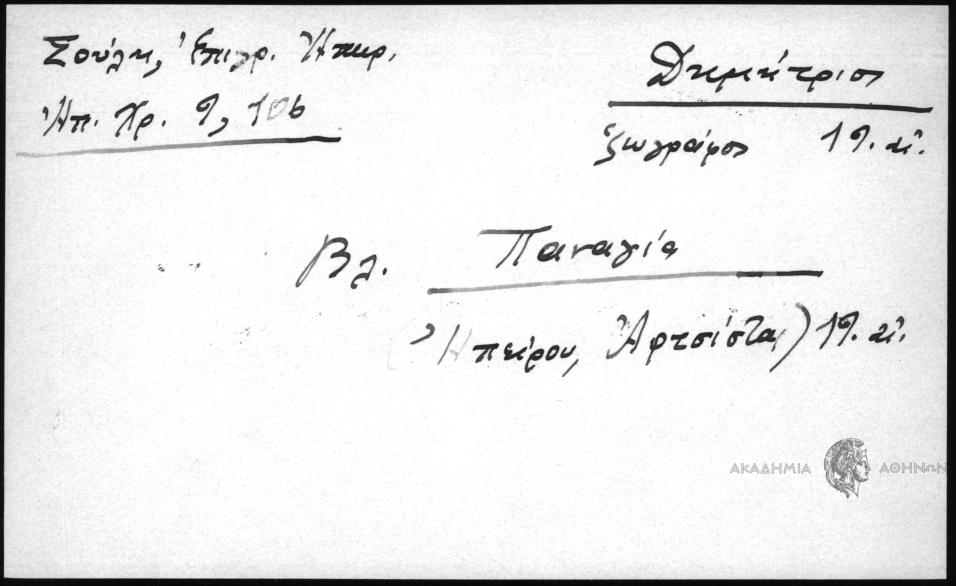 Σούλη, Ἐπιγρ. Ἠπειρ.
Ἠπ. Χρ. 9, 106
Δημήτριος
ζωγράφος 19. αἰ.
Βλ. Παναγία
(Ἠπείρου, Ἀρτσίστα) 19. αἰ.
ΑΚΑΔΗΜΙΑ ΑΘΗΝΩΝ